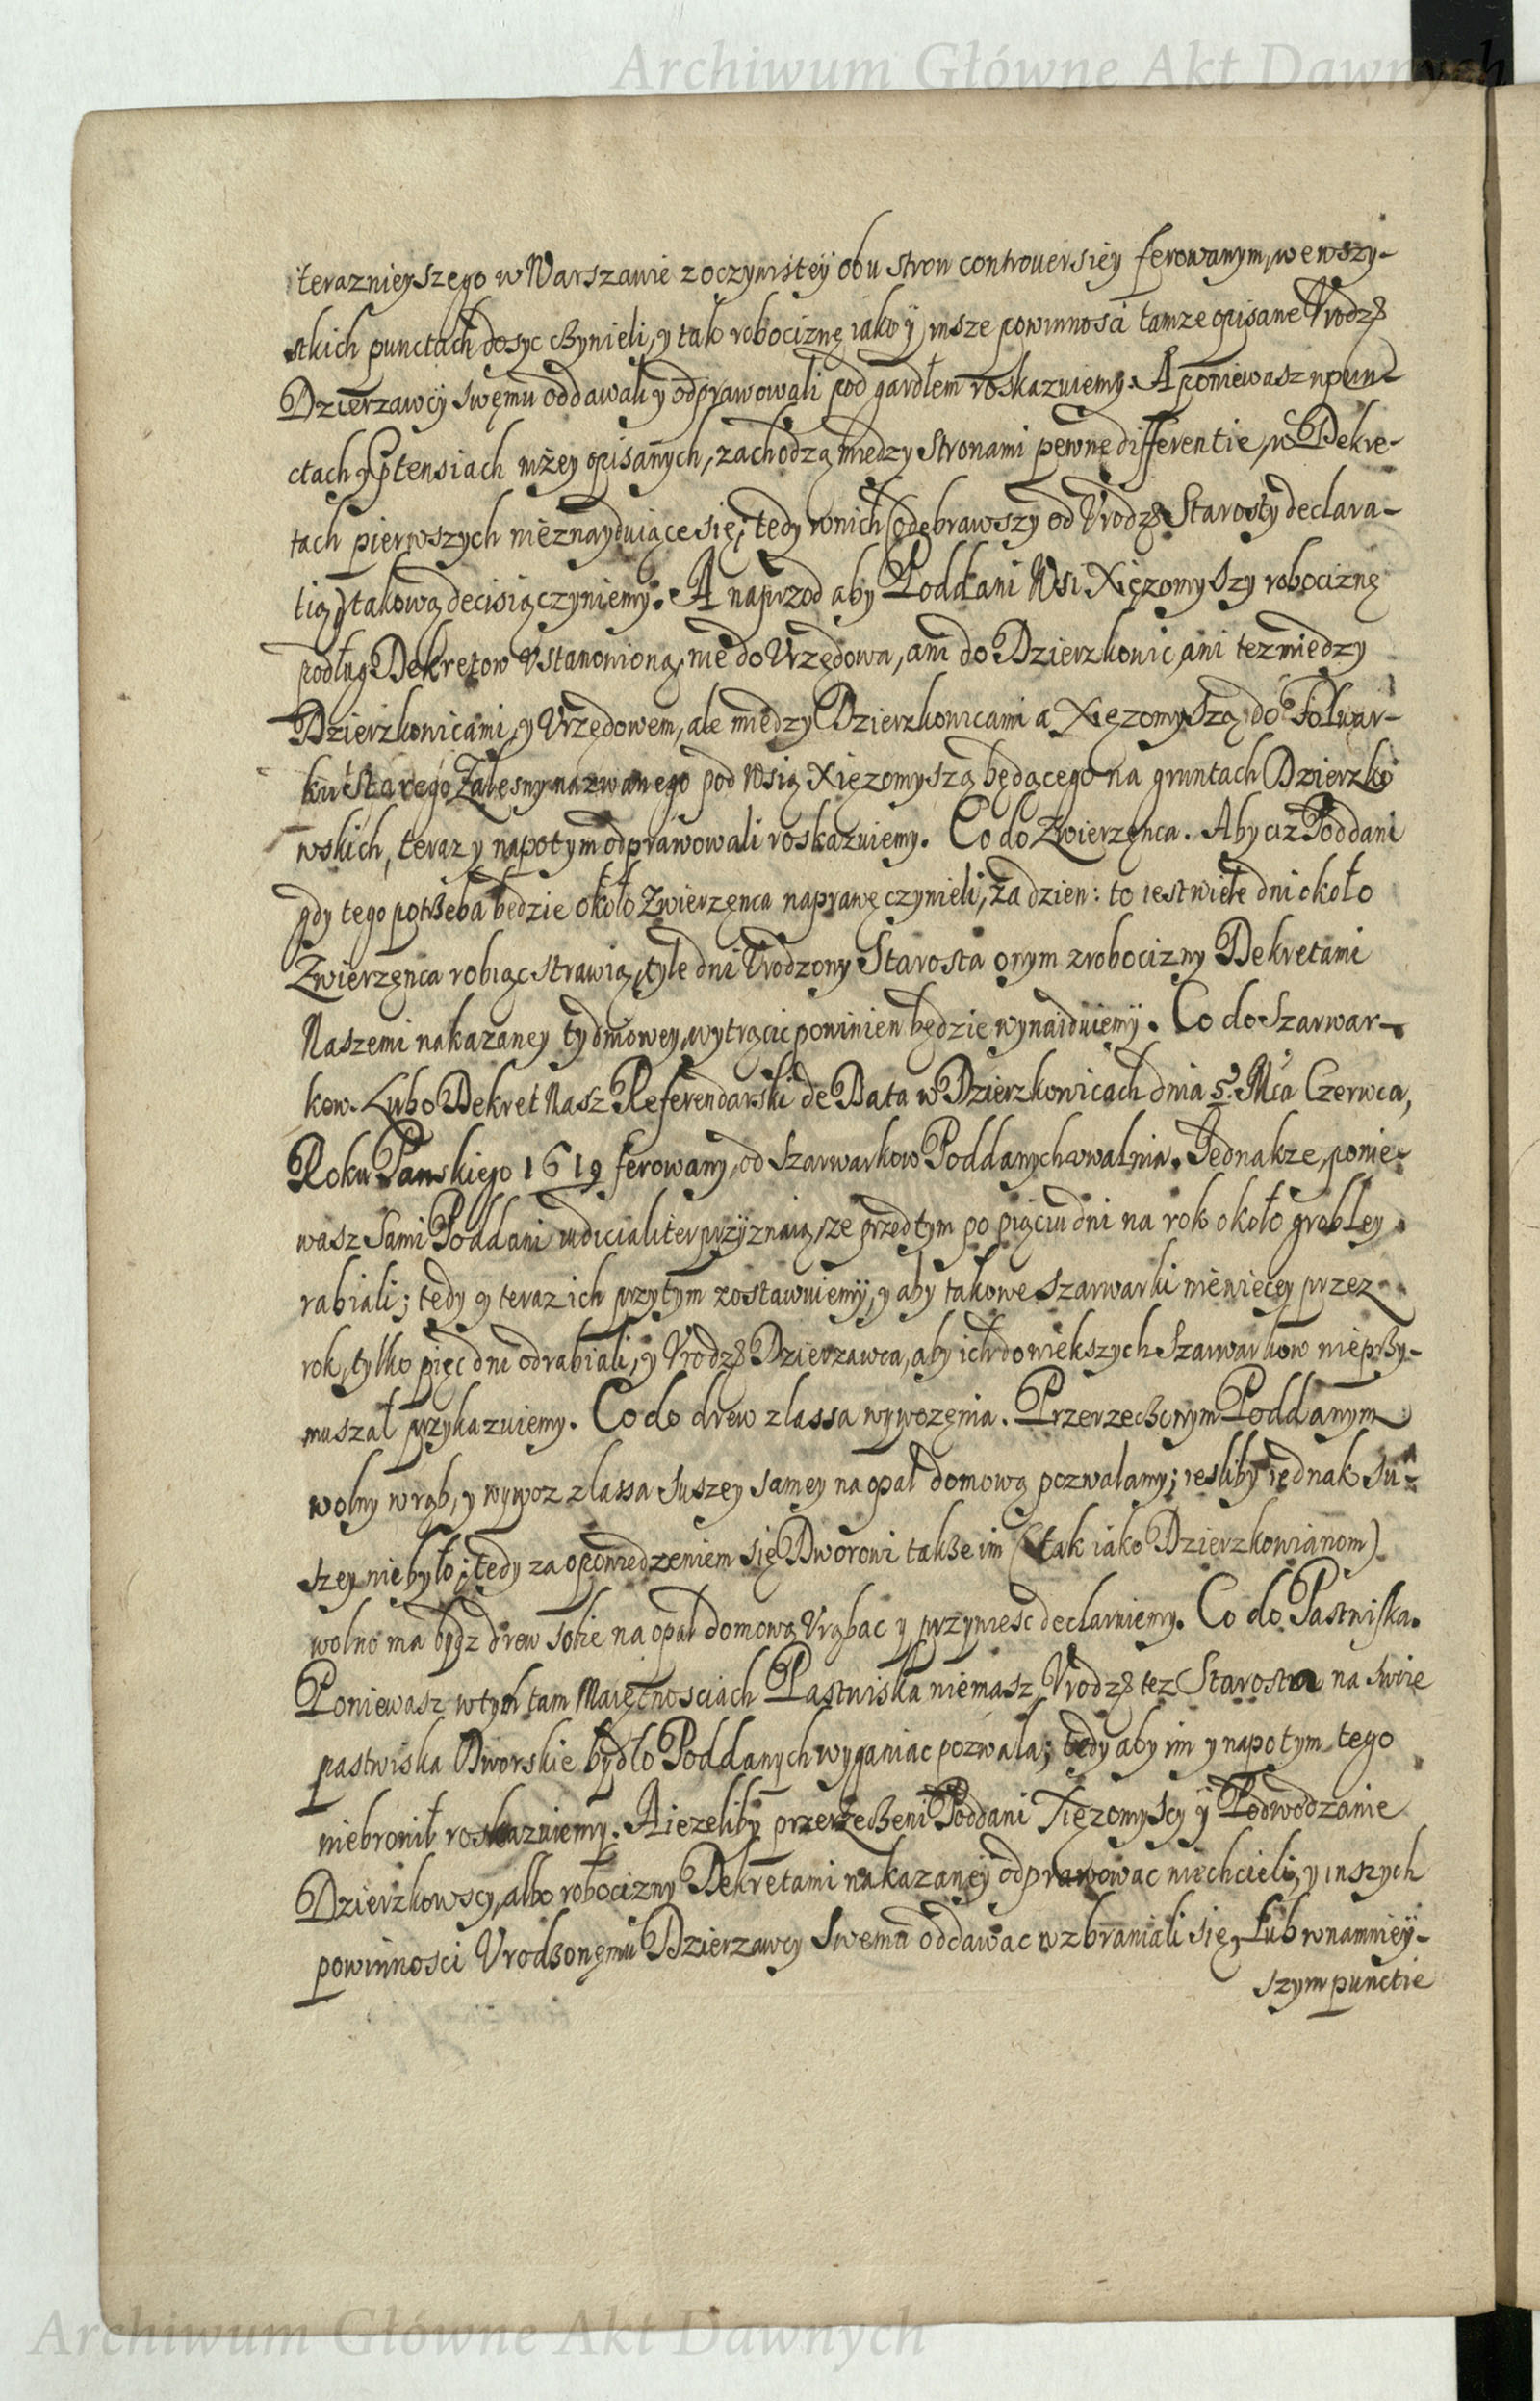 Archiwum Główne Akt Dawnych
teraznieyszego w Warszawie z oczywistey obu stron controuersiey ferowanym, we wszy-
stkich punctach dosyc czynieli, y tak robociznę iako y insze powinnosci tamze opisane Vrodz
Dzierzawcy swęmu oddawali y odprawowali pod gardłem roskazuiemy. A poniewasz w pun-
ctach y ptensiach niżey opisanych, zachodzą miedzy Stronami pewne differentie, w Dekre-
tach pierwszych nieznayduiące się; tedy w nich odebrawszy od Vrodz Starosty declara-
tią takową decisią czyniemy. A naprzod aby Poddani Wsi Xięzomyszy robociznę
podług Dekretow Vstanowioną, nie do Vrzędowa, ani do Dzierzkowic, ani tez miedzy
Dzierzkowicami, y Vrzędowem, ale miedzy Dzierzkowicami a Xięzomyszą do Folwar-
ku Starego Zalesny nazwanego pod Wsią Xięzomyszą będącego na gruntach Dzierzko
wskich, teraz y napotym odprawowali roskazuiemy. Co do Zwierzęnca. Aby ciz Poddani
gdy tego potrzeba będzie około Zwierzęnca naprawę czynieli, za dzien: to iest wiele dni około
Zwierzęnca robiąc strawią, tyle dni Vrodzony Starosta onym z robocizny Dekretami
Naszemi nakazaney tydniowey, wytrącic powinien będzie wynaiduiemy. Co do Szarwar-
kow. Lubo Dekret Nasz Referendarski de Data w Dzierzkowicach dnia 5. Mca Czerwca,
Roku Panskiego 1619 ferowany, od Szarwarkow Poddanych vwalnia. Jednakze, ponie-
wasz Sami Poddani iudicialiter przyznaią, ze przed tym po piąciu dni na rok około grobley
rabiali; tedy y teraz ich przytym zostawuiemy, y aby takowe szarwarki niewięcey przez
rok, tylko pięc dni odrabiali, y Vrodz Dzierzawca, aby ich do wiekszych Szarwarkow nieprzy-
muszał przykazuiemy. Co do drew z lassa wywozęnia. Przerzeczonym Poddanym
wolny wrąb, y wywoz z lassa suszey samey na opał domową pozwalamy; iesliby iednak su-
szey niebyło; tedy za opowiedzeniem się Dworowi takze im (tak iako Dzierzkowianom)
wolno ma bydz drew sobie na opał domową Vrąbac y przyniesc declaruiemy. Co do Pastwiska.
Poniewasz w tych tam Maiętnosciach Pastwiska niemasz, Vrodz tez Starosta na swoie
pastwiska Dworskie bydło Poddanych wyganiac pozwala; tedy aby im y napotym tego
niebronił roskazuiemy. A iezeliby przerzeczeni Poddani Xięzomyscy y Podwodzanie
Dzierzkowscy, albo robocizny Dekretami nakazaney odprawowac niechcieli, y inszych
powinnosci Vrodzonęmu Dzierzawcy Swemu oddawac wzbraniali się, Lub w namniey-
szym punctie
Archiwum Główne Akt Dawnych